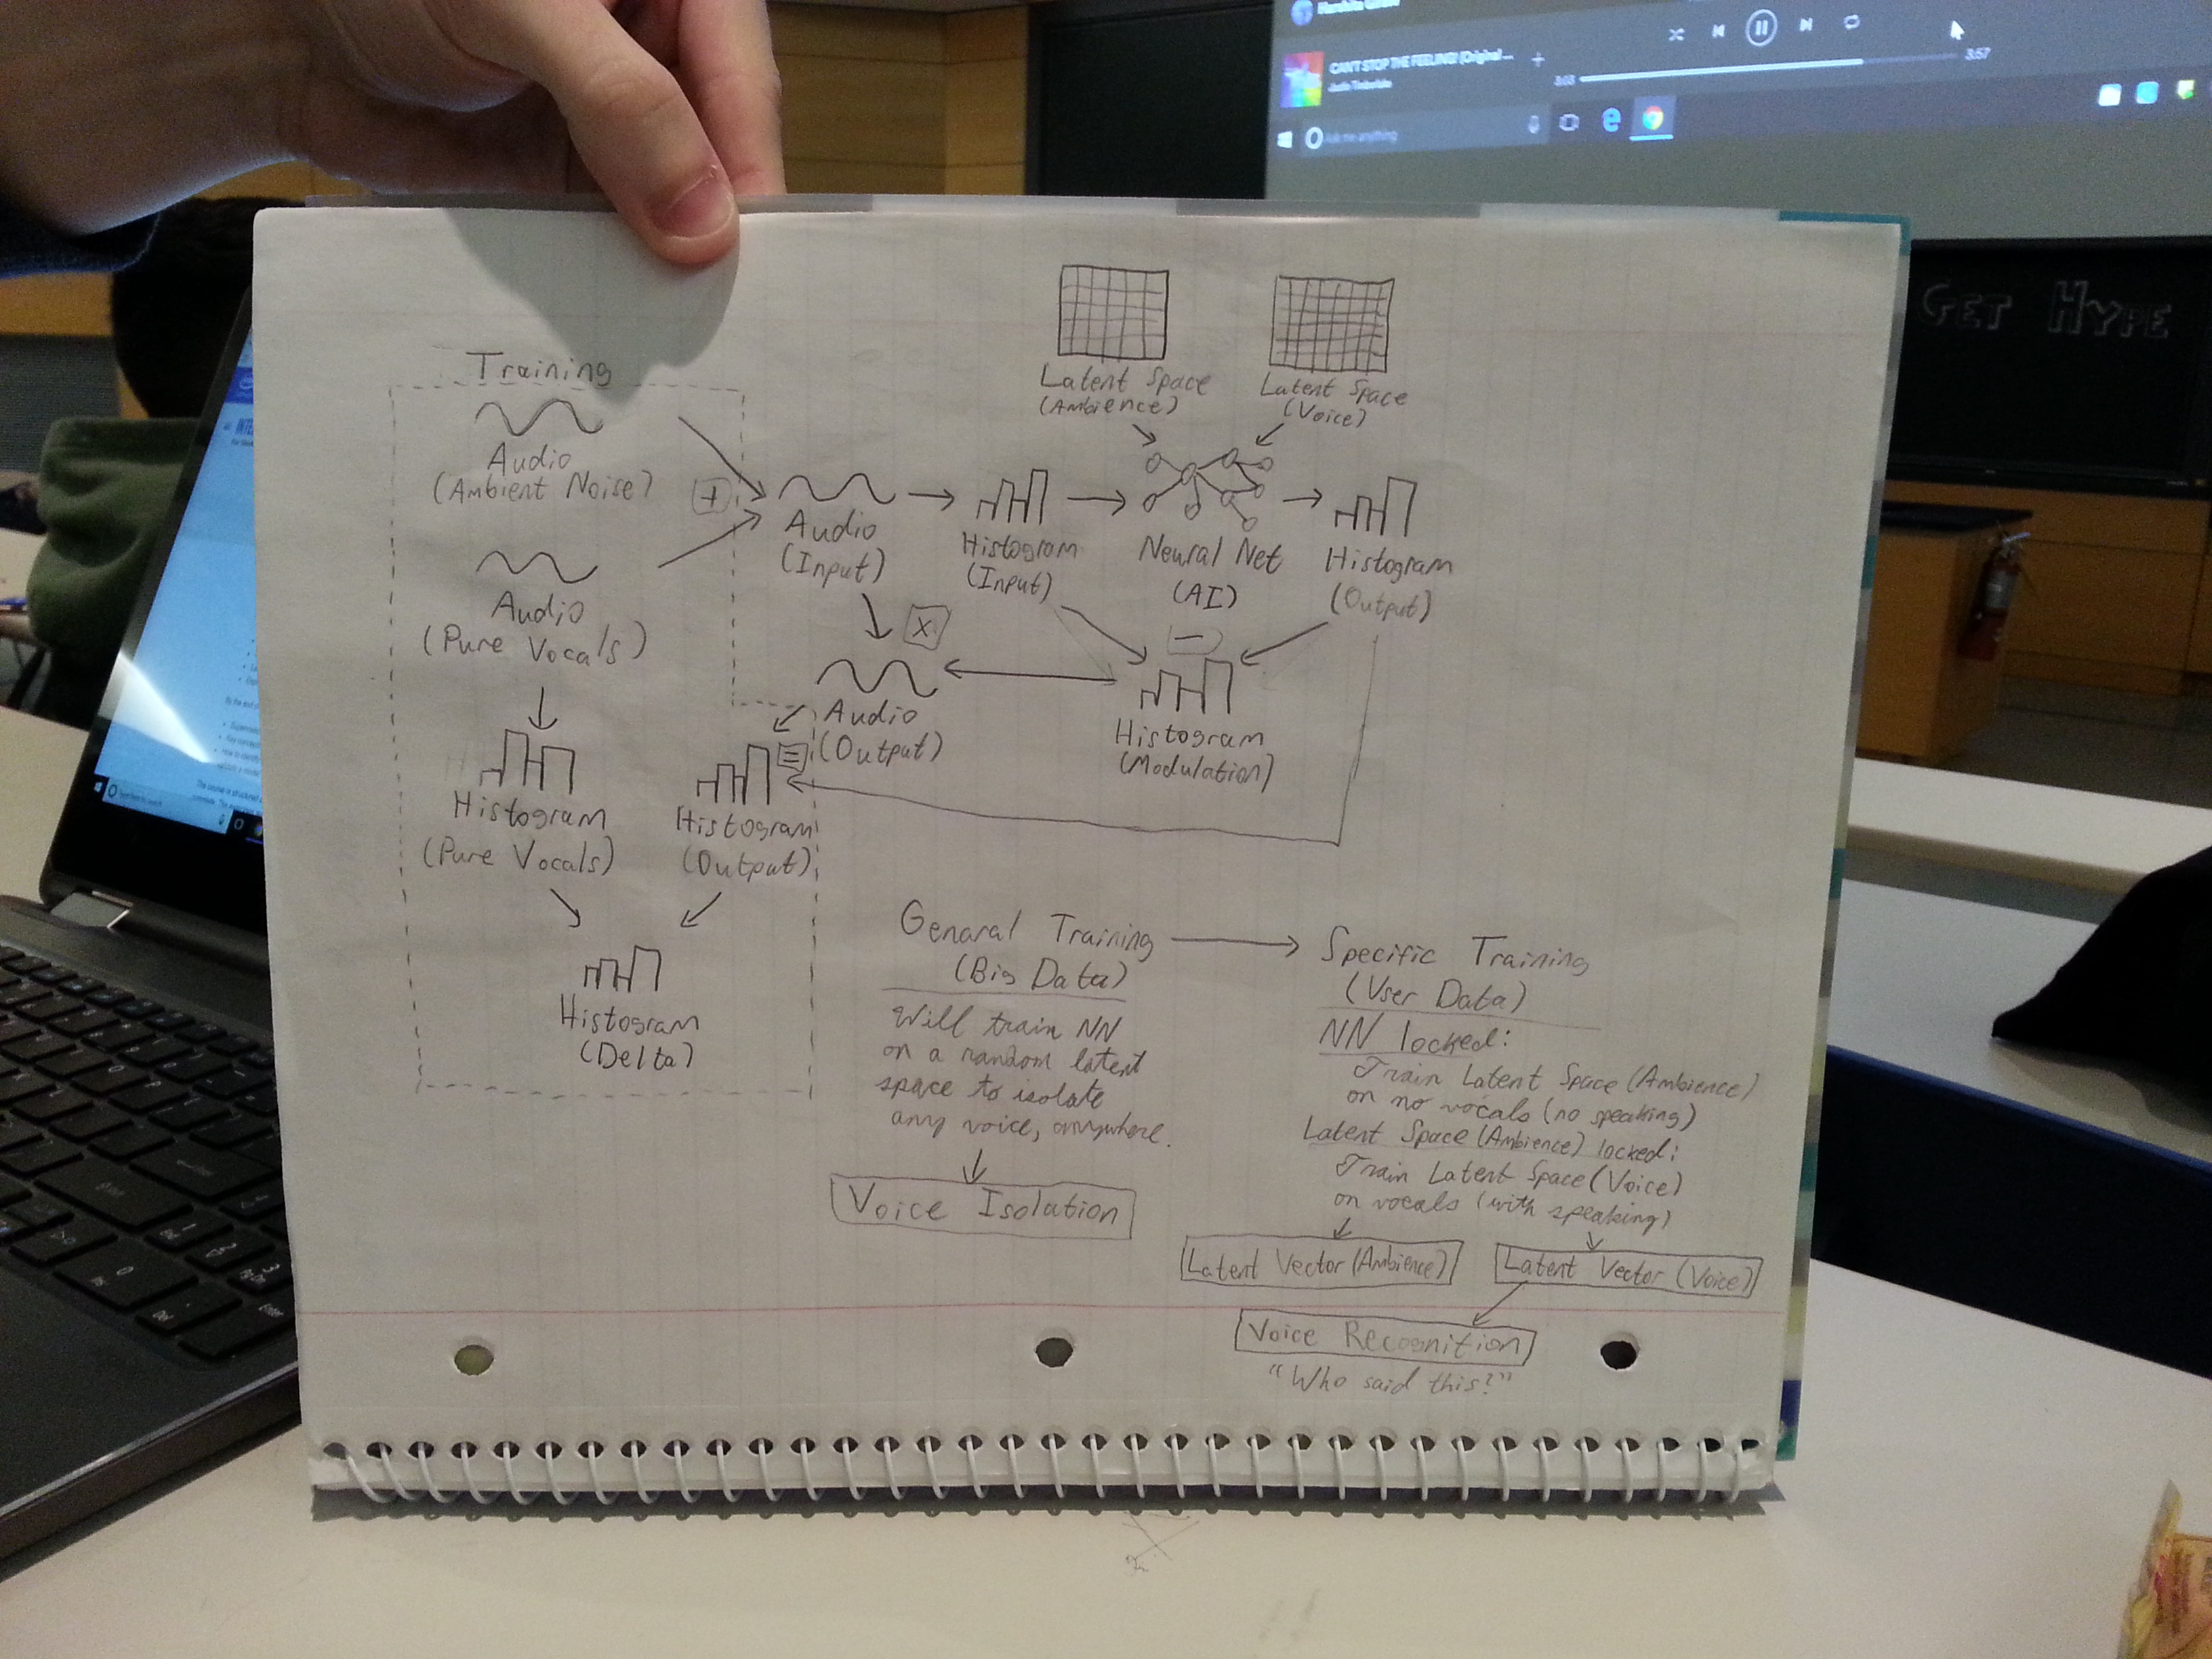 CAN'T STOP THE FEELING! (Original ...
Justin Timberlake
3:03
3:57
Ask me anything
GET HYPE
Training
Audio
(Ambient Noise)
+
Audio
(Pure Vocals)
Histogram
(Pure Vocals)
Histogram
(Output)
=
Histogram
(Delta)
Latent Space
(Ambience)
Latent Space
(Voice)
Audio
(Input)
Histogram
(Input)
Neural Net
(AI)
Histogram
(Output)
x
−
Audio
(Output)
Histogram
(Modulation)
Genaral Training
(Big Data)
Will train NN
on a random latent
space to isolate
any voice, anywhere.
Voice Isolation
Specific Training
(User Data)
NN locked:
Train Latent Space (Ambience)
on no vocals (no speaking)
Latent Space (Ambience) locked:
Train Latent Space (Voice)
on vocals (with speaking)
Latent Vector (Ambience)
Latent Vector (Voice)
Voice Recognition
"Who said this?"